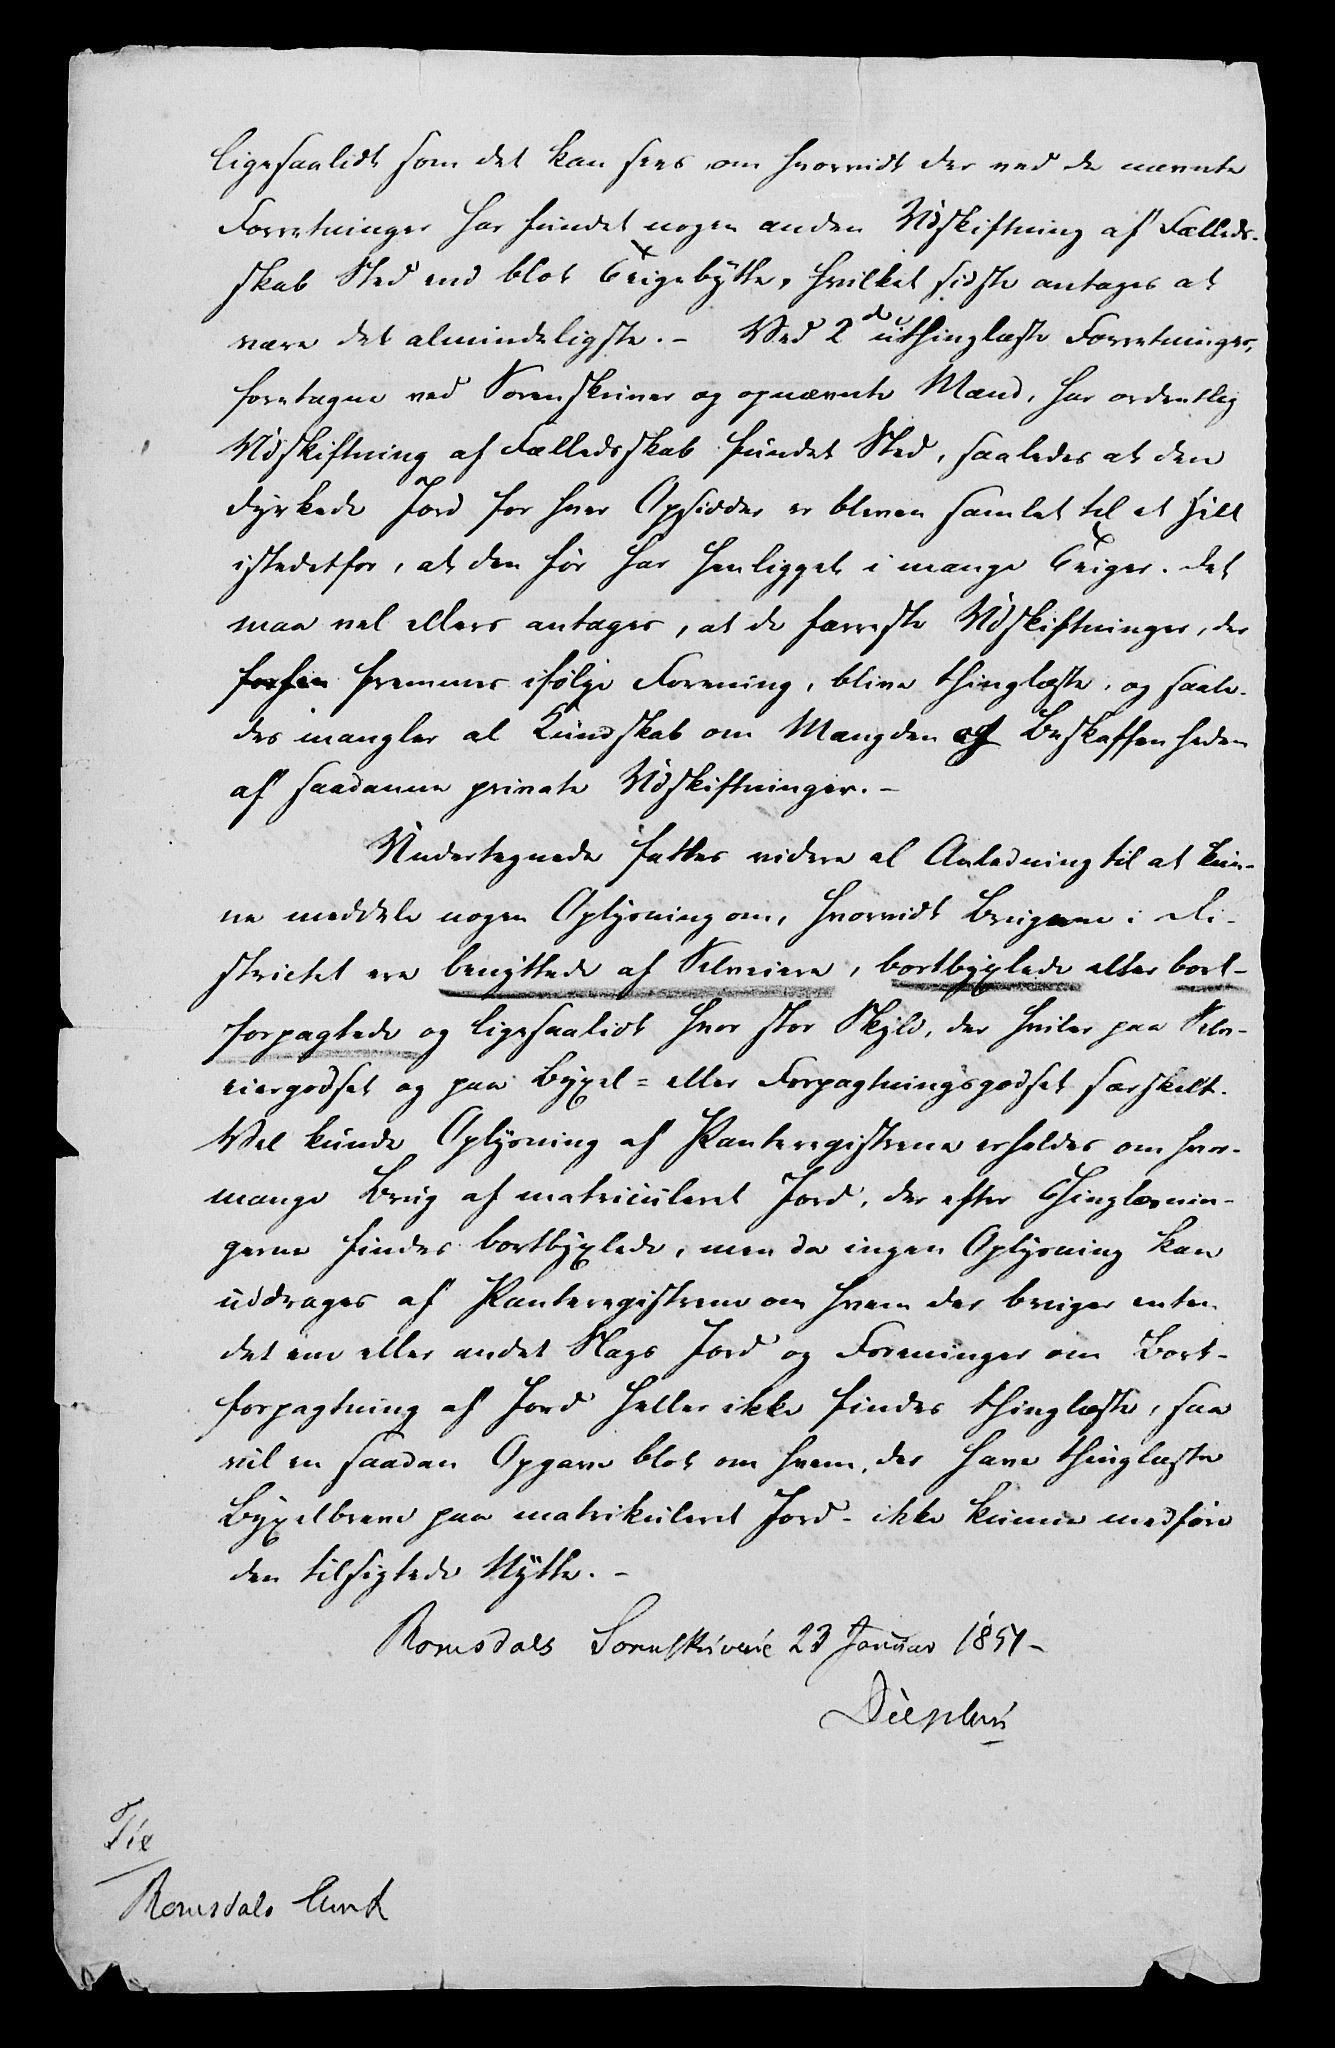 ligesaalidt som det kan sees om hvorvidt der ved de nævnte
Forretninger har fundet nogen anden Udskiftning af Fælleds-
skab Sted end blot Teigebytte, hvilket sidste antages at
være det almindeligste. – Ved 2de uthinglæste Forretninger,
foretagne ved Sorenskriver og opnævnte Mænd, har ordentlig
Udskiftning af Fælledsskab fundet Sted, saaledes at den
dyrkede Jord for hver Opsidder er bleven samlet til et hele
istedetfor, at den før har henligget i mange Teiger. Det
maa vel ellers antages, at de færreste Udskiftninger, der
fremmes ifølge Forening, blive thinglæste, og saale-
des mangler al Kundskab om Mængden og Beskaffenheden
af saadanne private Udskiftninger. –
Undertegnede fattes videre al Anledning til at kun-
ne meddele nogen Oplysning om, hvorvidt Brugene i Di-
strictet ere benyttede af Selveiere, bortbyxlede eller bort-
forpagtede og ligesaalidt hvor stor Skyld, der hviler paa Selv-
eiergodset og paa Byxel= eller Forpagtningsgodset særskelt.
Vel kunde Oplysning af Panteregistrene erholdes om hvor-
mange Brug af matriculeret Jord, der efter Thinglæsnin-
gerne findes bortbyxlede, men da ingen Oplysning kan
uddrages af Panteregistrene om hvem der bruger enten
det ene eller andet Slags Jord og Foreninger om Bort-
forpagtning af Jord heller ikke findes thinglæste, saa
vil en saadan Opgave blot om hvem, der have thinglæste
Byxelbreve paa matrikuleret Jord – ikke kunne medføre
den tilsigtede Nytte. –
Romsdals Sorenskriverie 23 Januar 1851 –
Til
Romsdals Amt